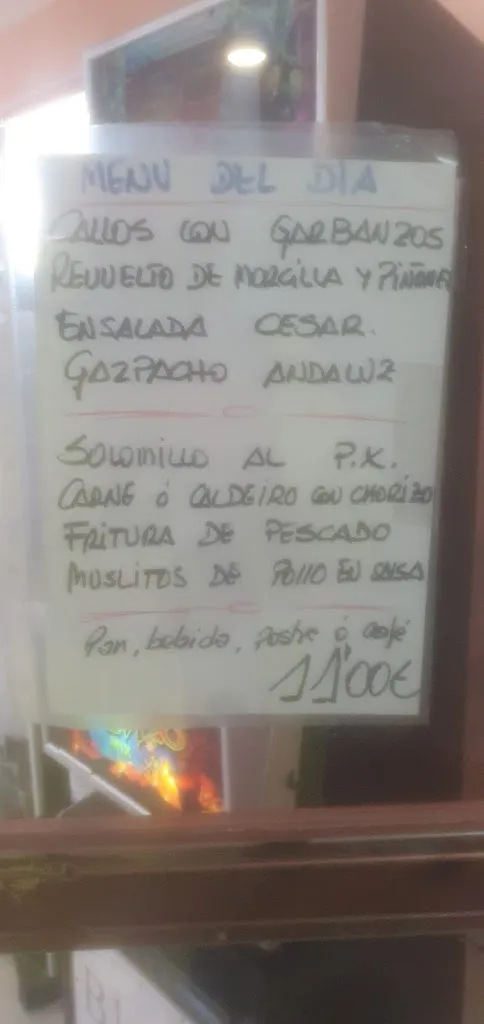 MENU DEL DÍA
CALLOS CON GARBANZOS
REVUELTO DE MORCILLA Y PIÑONES
ENSALADA CESAR.
GAZPACHO ANDALUZ
SOLOMILLO AL P.X.
CARNE ó CALDEIRO CON CHORIZO
FRITURA DE PESCADO
MUSLITOS DE POLLO EN SALSA
Pan, bebida, postre ó café
11'00€